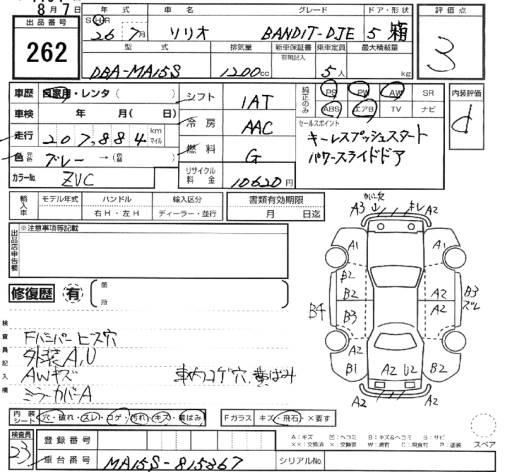 8月7日
出品番号
262
年式
グレード
ドア・形状
26年7月
ソリオ
BANDIT-DJE
5
箱
型式
排気量
新車保証書
有効記入
乗車定員
最大積載量
DBA-MA15S
1200cc
5人
kg
評価点
3
車歴
自家用・レンタ( )
車検
年 月( 日)
走行
207,884
km
マイル
色
グレー
カラーNo
ZVC
シフト
1AT
冷房
AAC
燃料
G
リサイクル料金
10620円
純正のみ
PS
PW
AW
SR
ABS
エアB
TV
ナビ
セールスポイント
キーレスプッシュスタート
パワースライドドア
内装評価
d
輸入車
モデル年式
ハンドル
輸入区分
右H・左H
ディーラー・並行
書類有効期限
月 日迄
出品店申告欄
※注意事項等記載
修復歴
有
箇所
検査員記入欄
Fバンパーヒス穴
外装A,U
AWキズ
ミラーカバーA
車内コゲ穴,黄ばみ
A3
キレ
A2
A2
A1
A1
B2
B2
A2
B3
B4
B3
A2
B3
ズレ
B1
A2
U2
B2
A2
A2
内装シート
穴・破れ・スレ・コゲ・汚れ・キズ・黄ばみ
Fガラス
キズ・飛石・×要す
検査員
23
登録番号
車台番号
MA15S-815367
シリアルNo.
A:キズ
U:凹ミ
B:キズ&ヘコミ
S:サビ
スペア